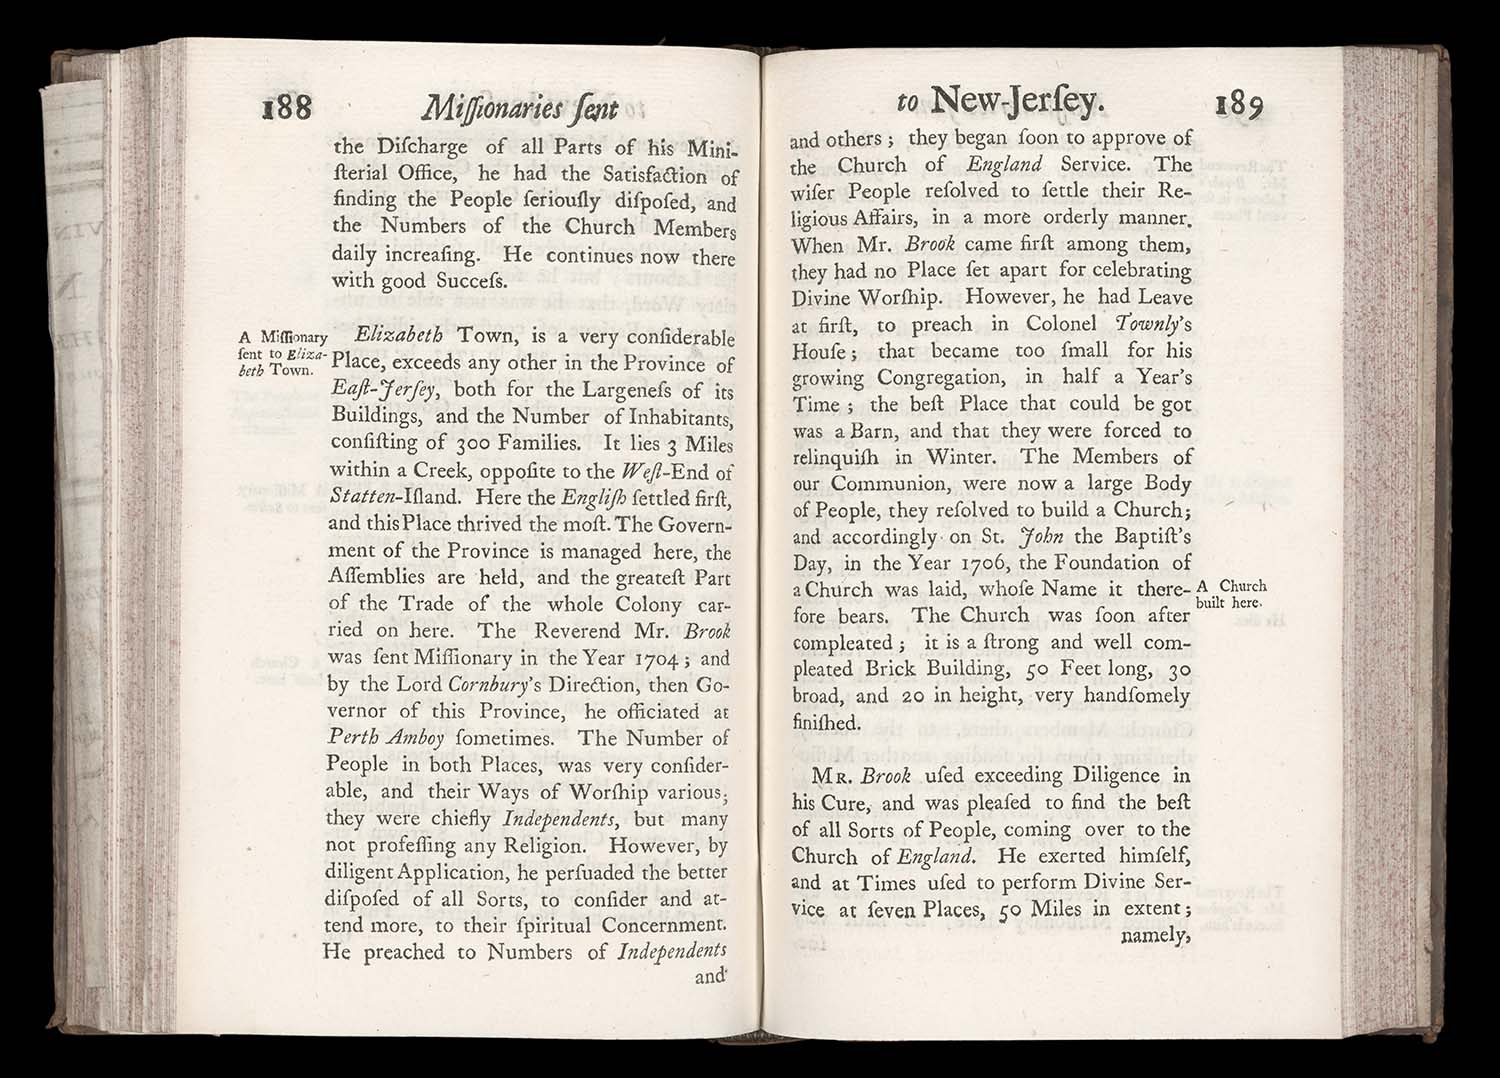 188 Miſſionaries ſent
the Diſcharge of all Parts of his Mini-
ſterial Office, he had the Satisfaction of
finding the People ſeriouſly diſpoſed, and
the Numbers of the Church Members
daily increaſing. He continues now there
with good Succeſs.
A Miſſionary
ſent to Eliza-
beth Town.
Elizabeth Town, is a very conſiderable
Place, exceeds any other in the Province of
Eaſt-Jerſey, both for the Largeneſs of its
Buildings, and the Number of Inhabitants,
conſiſting of 300 Families. It lies 3 Miles
within a Creek, oppoſite to the Weſt-End of
Statten-Iſland. Here the Engliſh ſettled firſt,
and this Place thrived the moſt. The Govern-
ment of the Province is managed here, the
Aſſemblies are held, and the greateſt Part
of the Trade of the whole Colony car-
ried on here. The Reverend Mr. Brook
was ſent Miſſionary in the Year 1704; and
by the Lord Cornbury's Direction, then Go-
vernor of this Province, he officiated at
Perth Amboy ſometimes. The Number of
People in both Places, was very conſider-
able, and their Ways of Worſhip various;
they were chiefly Independents, but many
not profeſſing any Religion. However, by
diligent Application, he perſuaded the better
diſpoſed of all Sorts, to conſider and at-
tend more, to their ſpiritual Concernment.
He preached to Numbers of Independents
and
to New-Jerſey. 189
and others; they began ſoon to approve of
the Church of England Service. The
wiſer People reſolved to ſettle their Re-
ligious Affairs, in a more orderly manner.
When Mr. Brook came firſt among them,
they had no Place ſet apart for celebrating
Divine Worſhip. However, he had Leave
at firſt, to preach in Colonel Townly's
Houſe; that became too ſmall for his
growing Congregation, in half a Year's
Time; the beſt Place that could be got
was a Barn, and that they were forced to
relinquiſh in Winter. The Members of
our Communion, were now a large Body
of People, they reſolved to build a Church;
and accordingly on St. John the Baptiſt's
Day, in the Year 1706, the Foundation of
a Church was laid, whoſe Name it there-
fore bears. The Church was ſoon after
compleated; it is a ſtrong and well com-
pleated Brick Building, 50 Feet long, 30
broad, and 20 in height, very handſomely
finiſhed.
A Church
built here.
MR. Brook uſed exceeding Diligence in
his Cure, and was pleaſed to find the beſt
of all Sorts of People, coming over to the
Church of England. He exerted himſelf,
and at Times uſed to perform Divine Ser-
vice at ſeven Places, 50 Miles in extent;
namely,